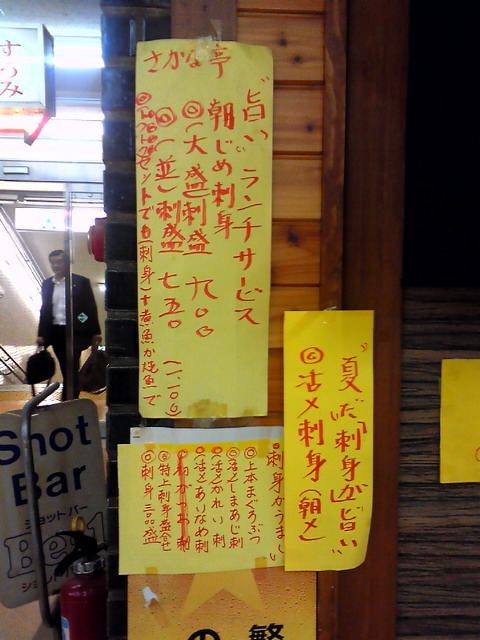 "旨い" ランチサービス
朝じめ刺身
◎(大盛)刺盛 九〇〇
◎(並)刺盛 七五〇
(刺身)+煮魚か焼魚で
(一、一〇〇)
さかな亭
"夏だ「刺身」が旨い"
◎活〆刺身(朝〆)
刺身がうまい
◎上本まぐろぶつ
◎(活)しまあじ刺
◎(活)かれい刺
◎(活)あいなめ刺
◎特上刺身盛合せ
◎刺身三品盛
すつみ
Shot
Bar
ショットバー
の繁